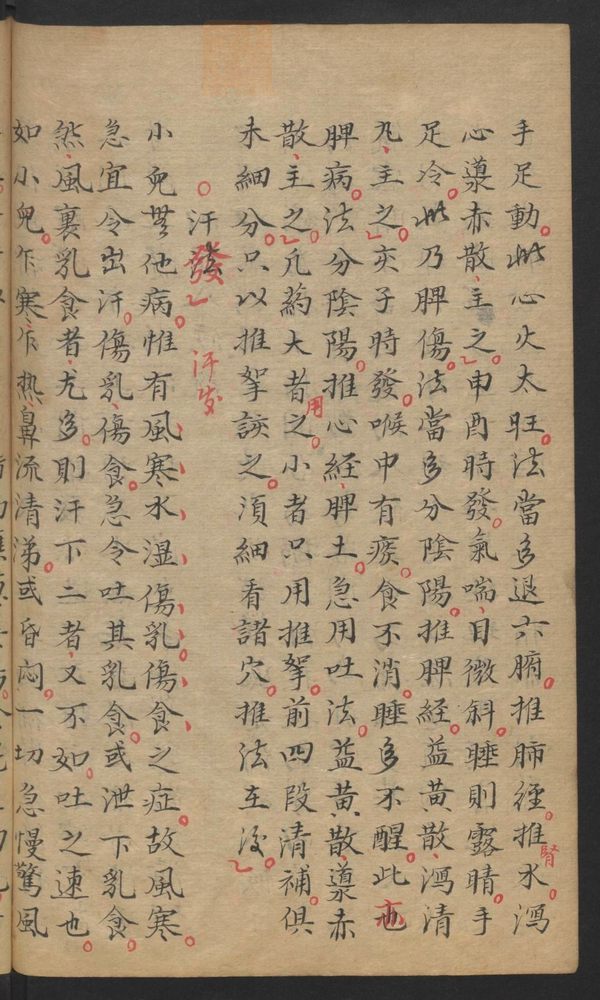 手足動此心火太旺法當多退六腑推肺經推腎水瀉
心導赤散主之申酉時發氣喘目微斜睡則露睛手
足冷此乃脾傷法當多分陰陽推脾經益黃散瀉清
丸主之亥子時發喉中有痰食不消睡多不醒此亦
脾病法分陰陽推心經脾土急用吐法益黃散導赤
散主之凡藥大者用之小者只用推拏前四段清補俱
未細分只以推拏訣之須細看諸穴推法在後
汗發 汗发
小兒無他病惟有風寒水濕傷乳傷食之症故風寒
急宜令出汗傷乳傷食急令吐其乳食或泄下乳食
然風裏乳食者尤多則汗下二者又不如吐之速也
如小兒乍寒乍热鼻流清涕或昏悶一切急慢驚風